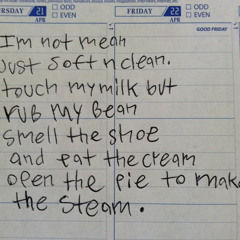 RSDAY 21 ODD EVEN APR FRIDAY 22 ODD EVEN APR
GOOD FRIDAY
I'm not mean
Just soft n clean.
touch my milk but
rub my Bean
smell the shoe
and eat the cream
open the pie to make
the steam.